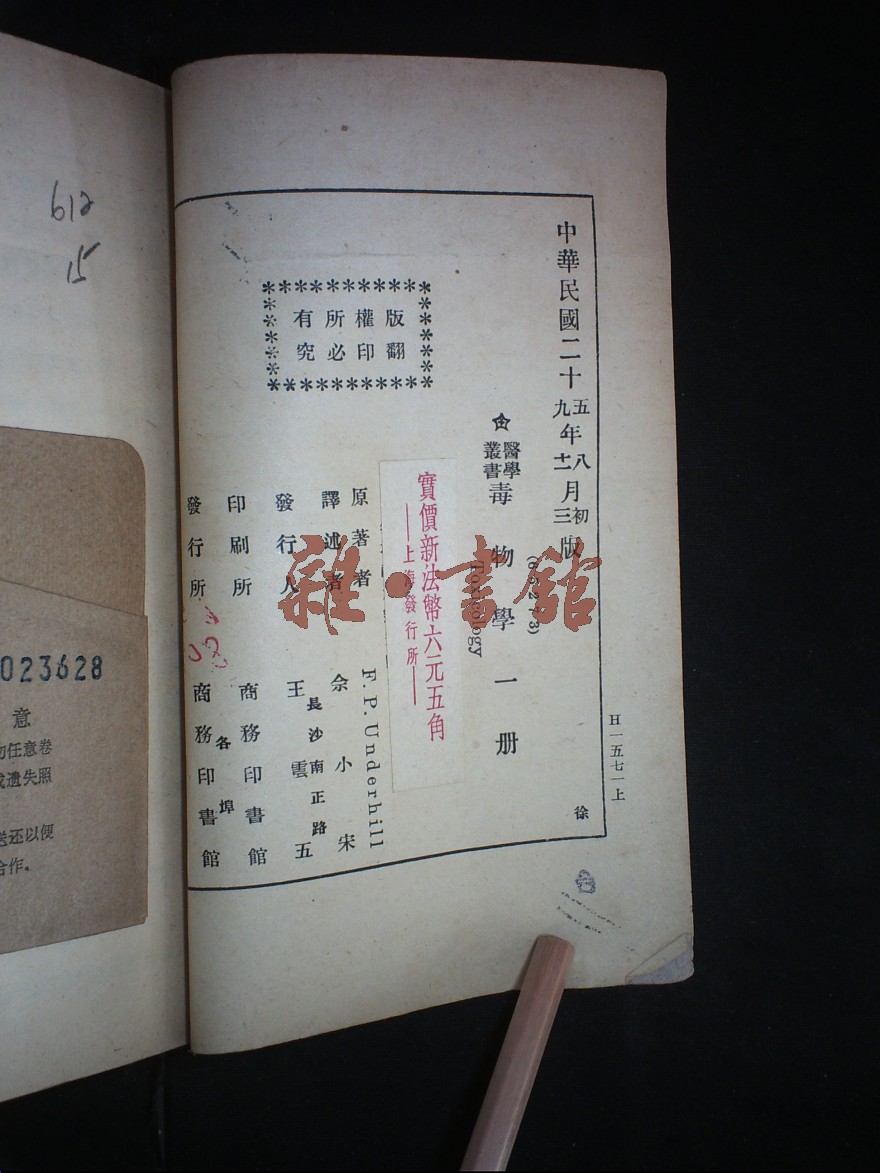 中華民國二十五年八月初版
中華民國二十九年十二月三版
醫學叢書
毒物學一册
(65273)
Toxicology
實價新法幣六元五角
—上海發行所—
版權所有
翻印必究
原著者 F. P. Underhill
譯述者 余小宋
發行人 王雲五
長沙南正路
印刷所 商務印書館
各埠
發行所 商務印書館
H一五七一上
徐
雜·書館
612
15
023628
意
勿任意卷
遺失照
还以便
合作。